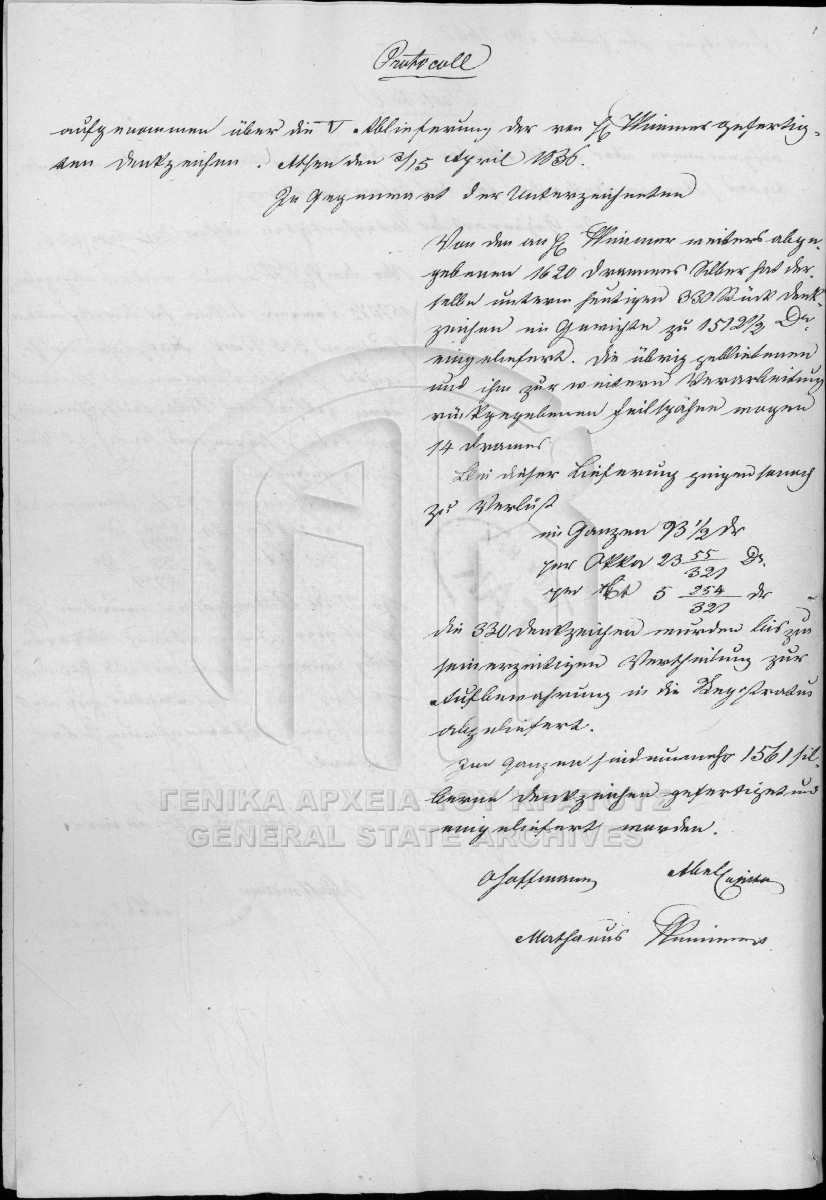 Protocoll
aufgenommen über die V Ablieferung der von H. Wimmer gefertig-
ten Denkzeichen. Athen den 3/15 April 1836.
In Gegenwart der Unterzeichneten
Von den an H. Wimmer weiters abge-
gebenen 1620 Drammes Silber hat der-
selbe unterm heutigen 330 Stück Denk-
zeichen im Gewichte zu 1512 1/2 Dr.
eingeliefert. Die übrig gebliebenen
und ihm zur weitern Verarbeitung
rückgegebenen Feilspähne wogen
14 Drames
Bei dieser Lieferung gingen sonach
zu Verlust
im Ganzen 93 1/2 dr
per Okka 23 55/321 Dr.
per 5 254/321 dr
Die 330 Denkzeichen wurden bis zur
seinerzeitigen Vertheilung zur
Aufbewahrung in die Registratur
abgeliefert.
Im Ganzen sind nunmehr 1561 sil-
berne Denkzeichen gefertiget und
eingeliefert worden.
Hoffmann Abel
Mathaeus Wimmer
ΓΕΝΙΚΑ ΑΡΧΕΙΑ ΤΟΥ ΚΡΑΤΟΥΣ
GENERAL STATE ARCHIVES